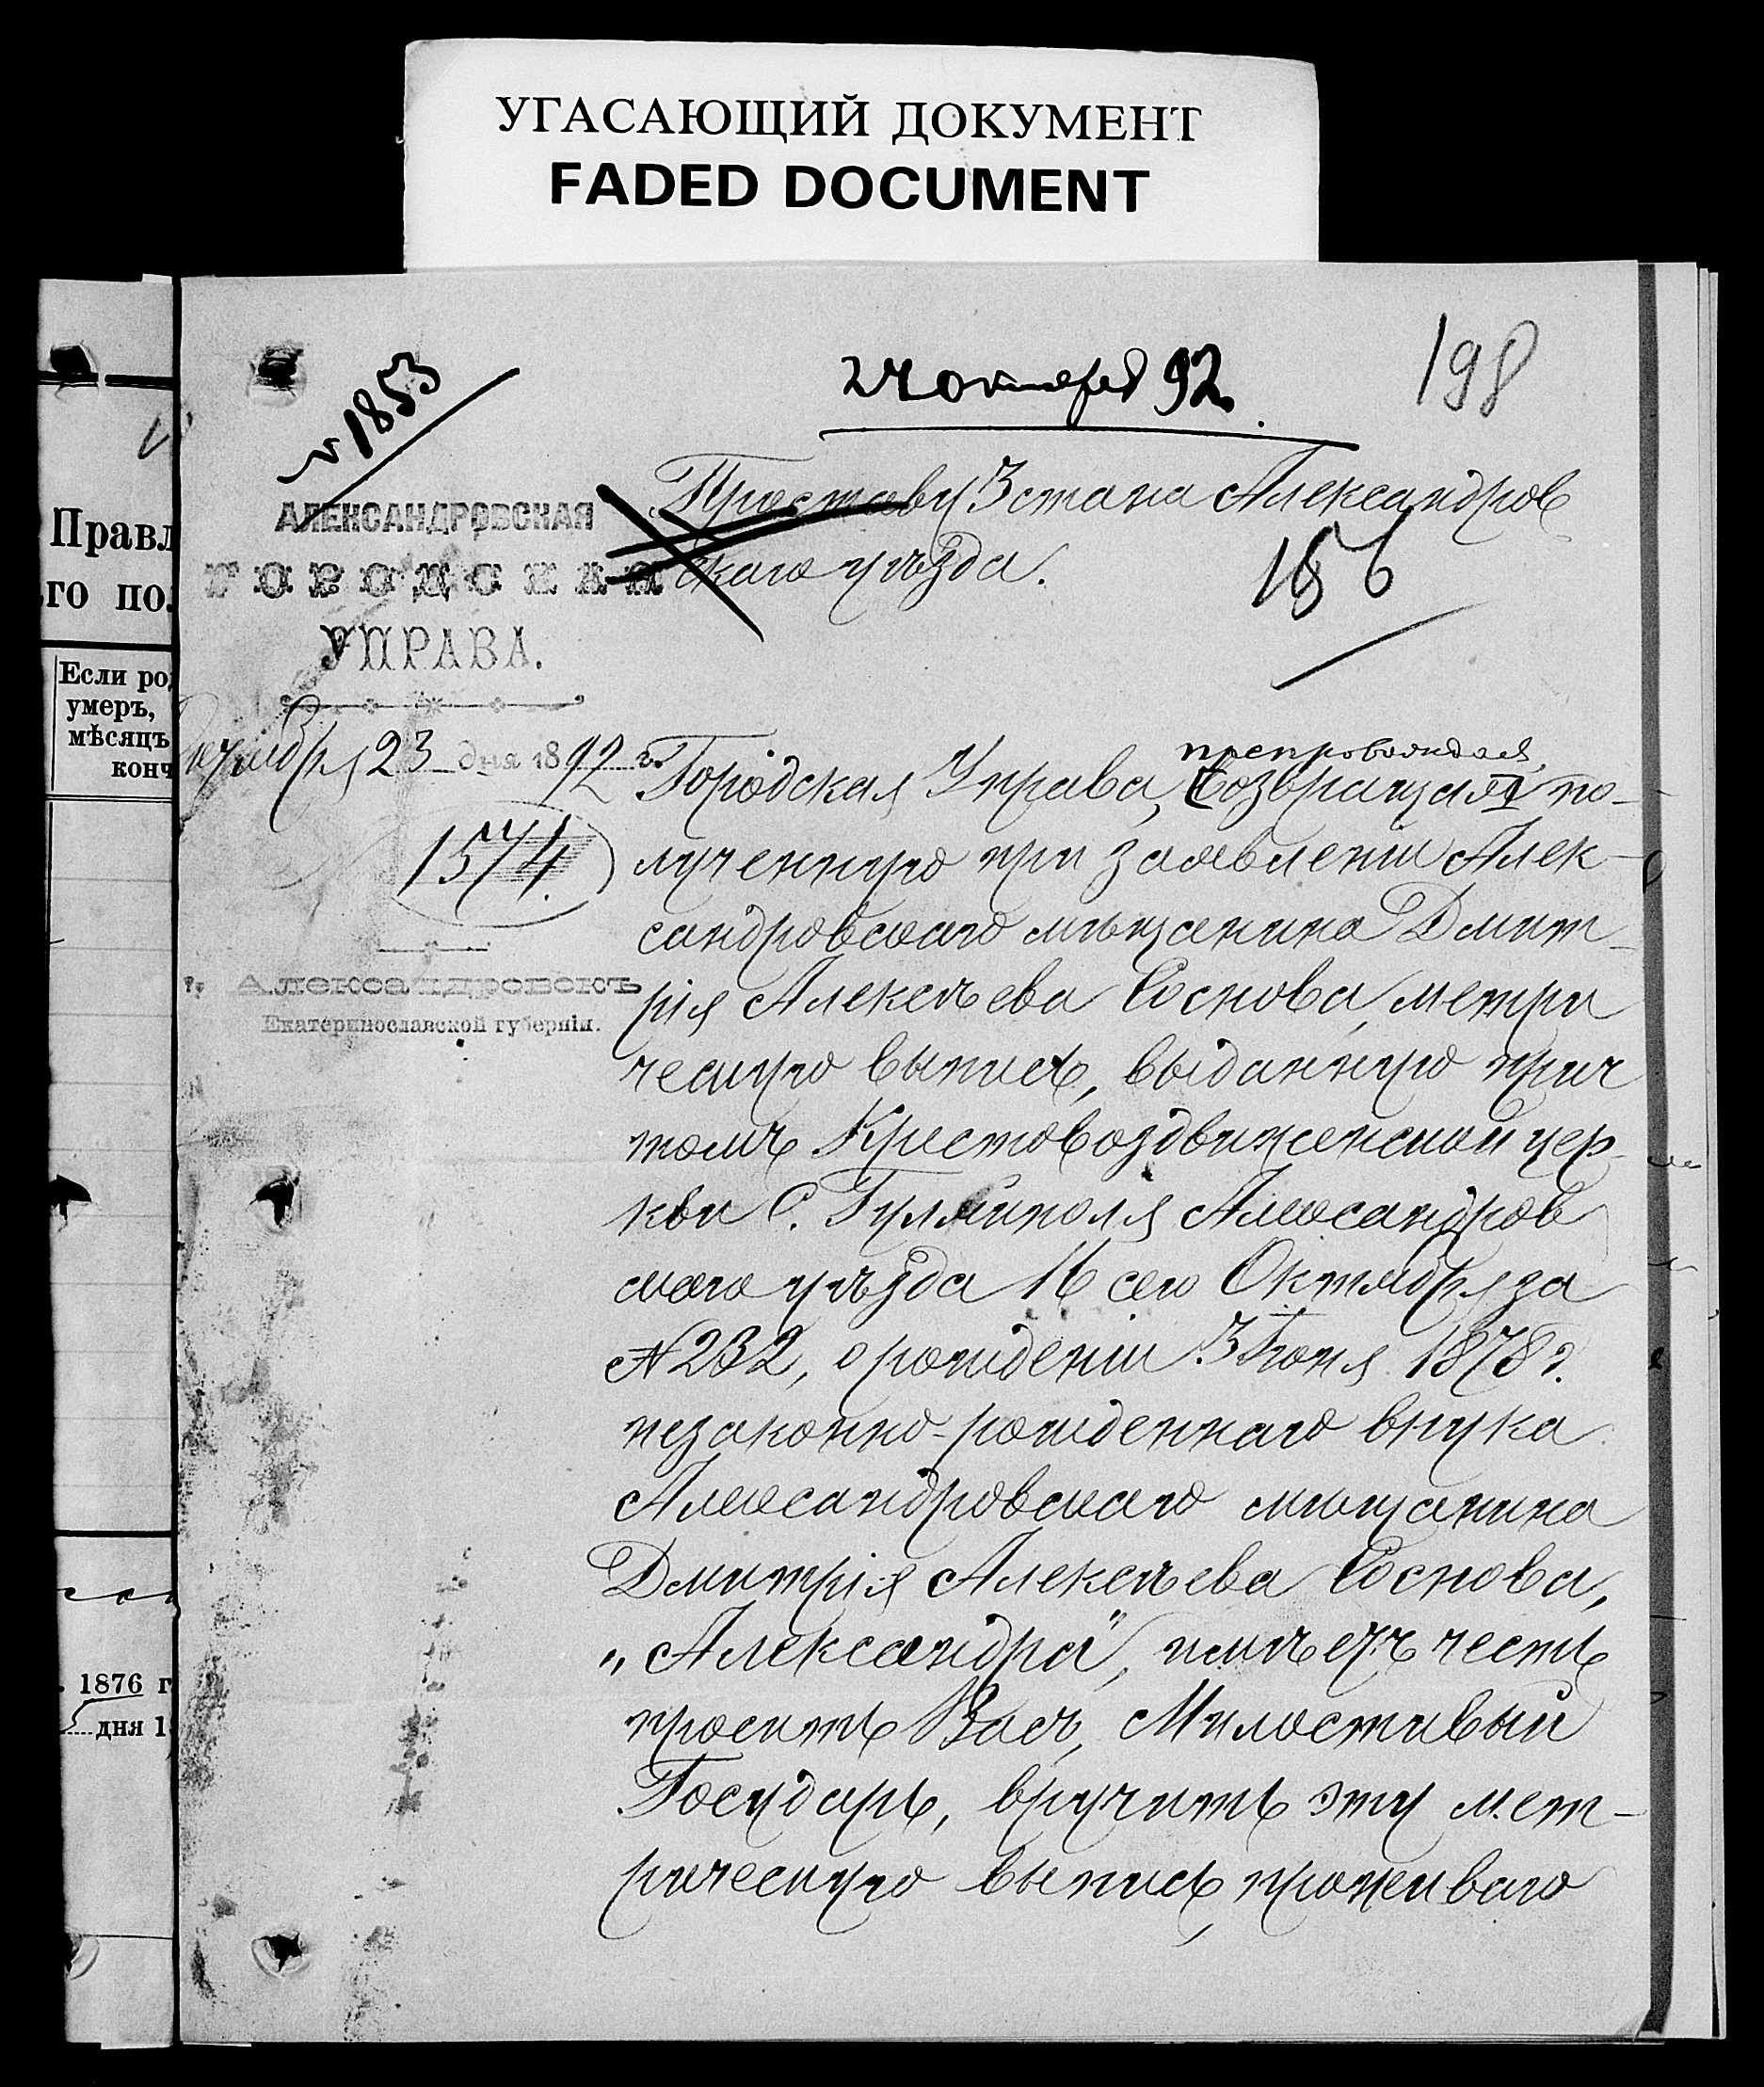 УГАСАЮЩИЙ ДОКУМЕНТ
FADED DOCUMENT
24 октября 92.
198
№ 1853
АЛЕКСАНДРОВСКАЯ
ГОРОДСКАЯ
УПРАВА.
Октября 23 дня 1892 г.
1574.
г. Александровскъ
Екатеринославской губерніи.
Приставу 3 стана Александров
скаго уѣзда.
156
препровождая,
Городская Управа, возвращая по-
лученную при заявленіи Алек-
сандровскаго мѣщанина Дмит-
рія Алексѣева Соснова, метри
ческую выпись, выданную прич
томъ Крестовоздвиженской цер-
кви С. Гуляйполя Александров
скаго уѣзда 16 сего Октября за
№ 232, о рожденіи 3 Іюня 1878 г.
незаконно-рожденнаго внука
Александровскаго мѣщанина
Дмитрія Алексѣева Соснова,
„Александра", имѣетъ честь
просить Васъ, Милостивый
Государь, вручить эту мет-
рическую выпись проживаю
Правл
го пол
Если род
умеръ,
мѣсяцъ
конч
1876 г
дня 1